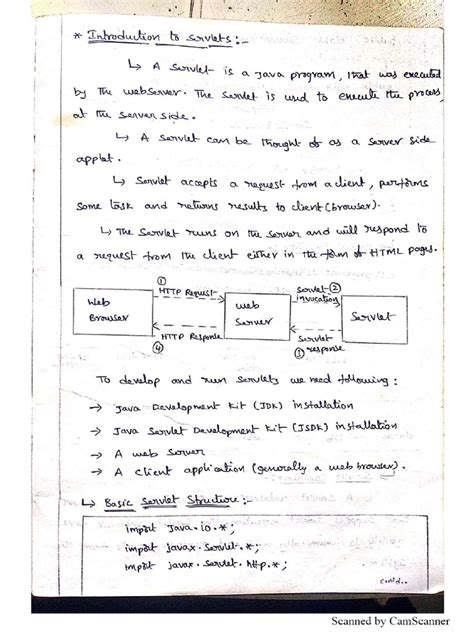 * Introduction to Servlets:-
↳ A Servlet is a Java program, that was executed
by the webserver. The Servlet is used to execute the process
at the server side.
↳ A Servlet can be thought of as a Server Side
applet.
↳ Servlet accepts a request from a client, performs
some task and returns results to client (browser).
↳ The Servlet runs on the server and will respond to
a request from the client either in the form of HTML pages.
①
HTTP Request
Servlet ②
invocation
Web
Browser
Web
Server
Servlet
HTTP Response
④
Servlet
③ response
To develop and run Servlets we need following:
→ Java Development Kit (JDK) installation
→ Java Servlet Development Kit (JSDK) installation
→ A web Server
→ A client application (generally a web browser).
↳ Basic Servlet Structure:-
import Java.io.*;
import javax.Servlet.*;
import javax.Servlet.http.*;
contd..
Scanned by CamScanner